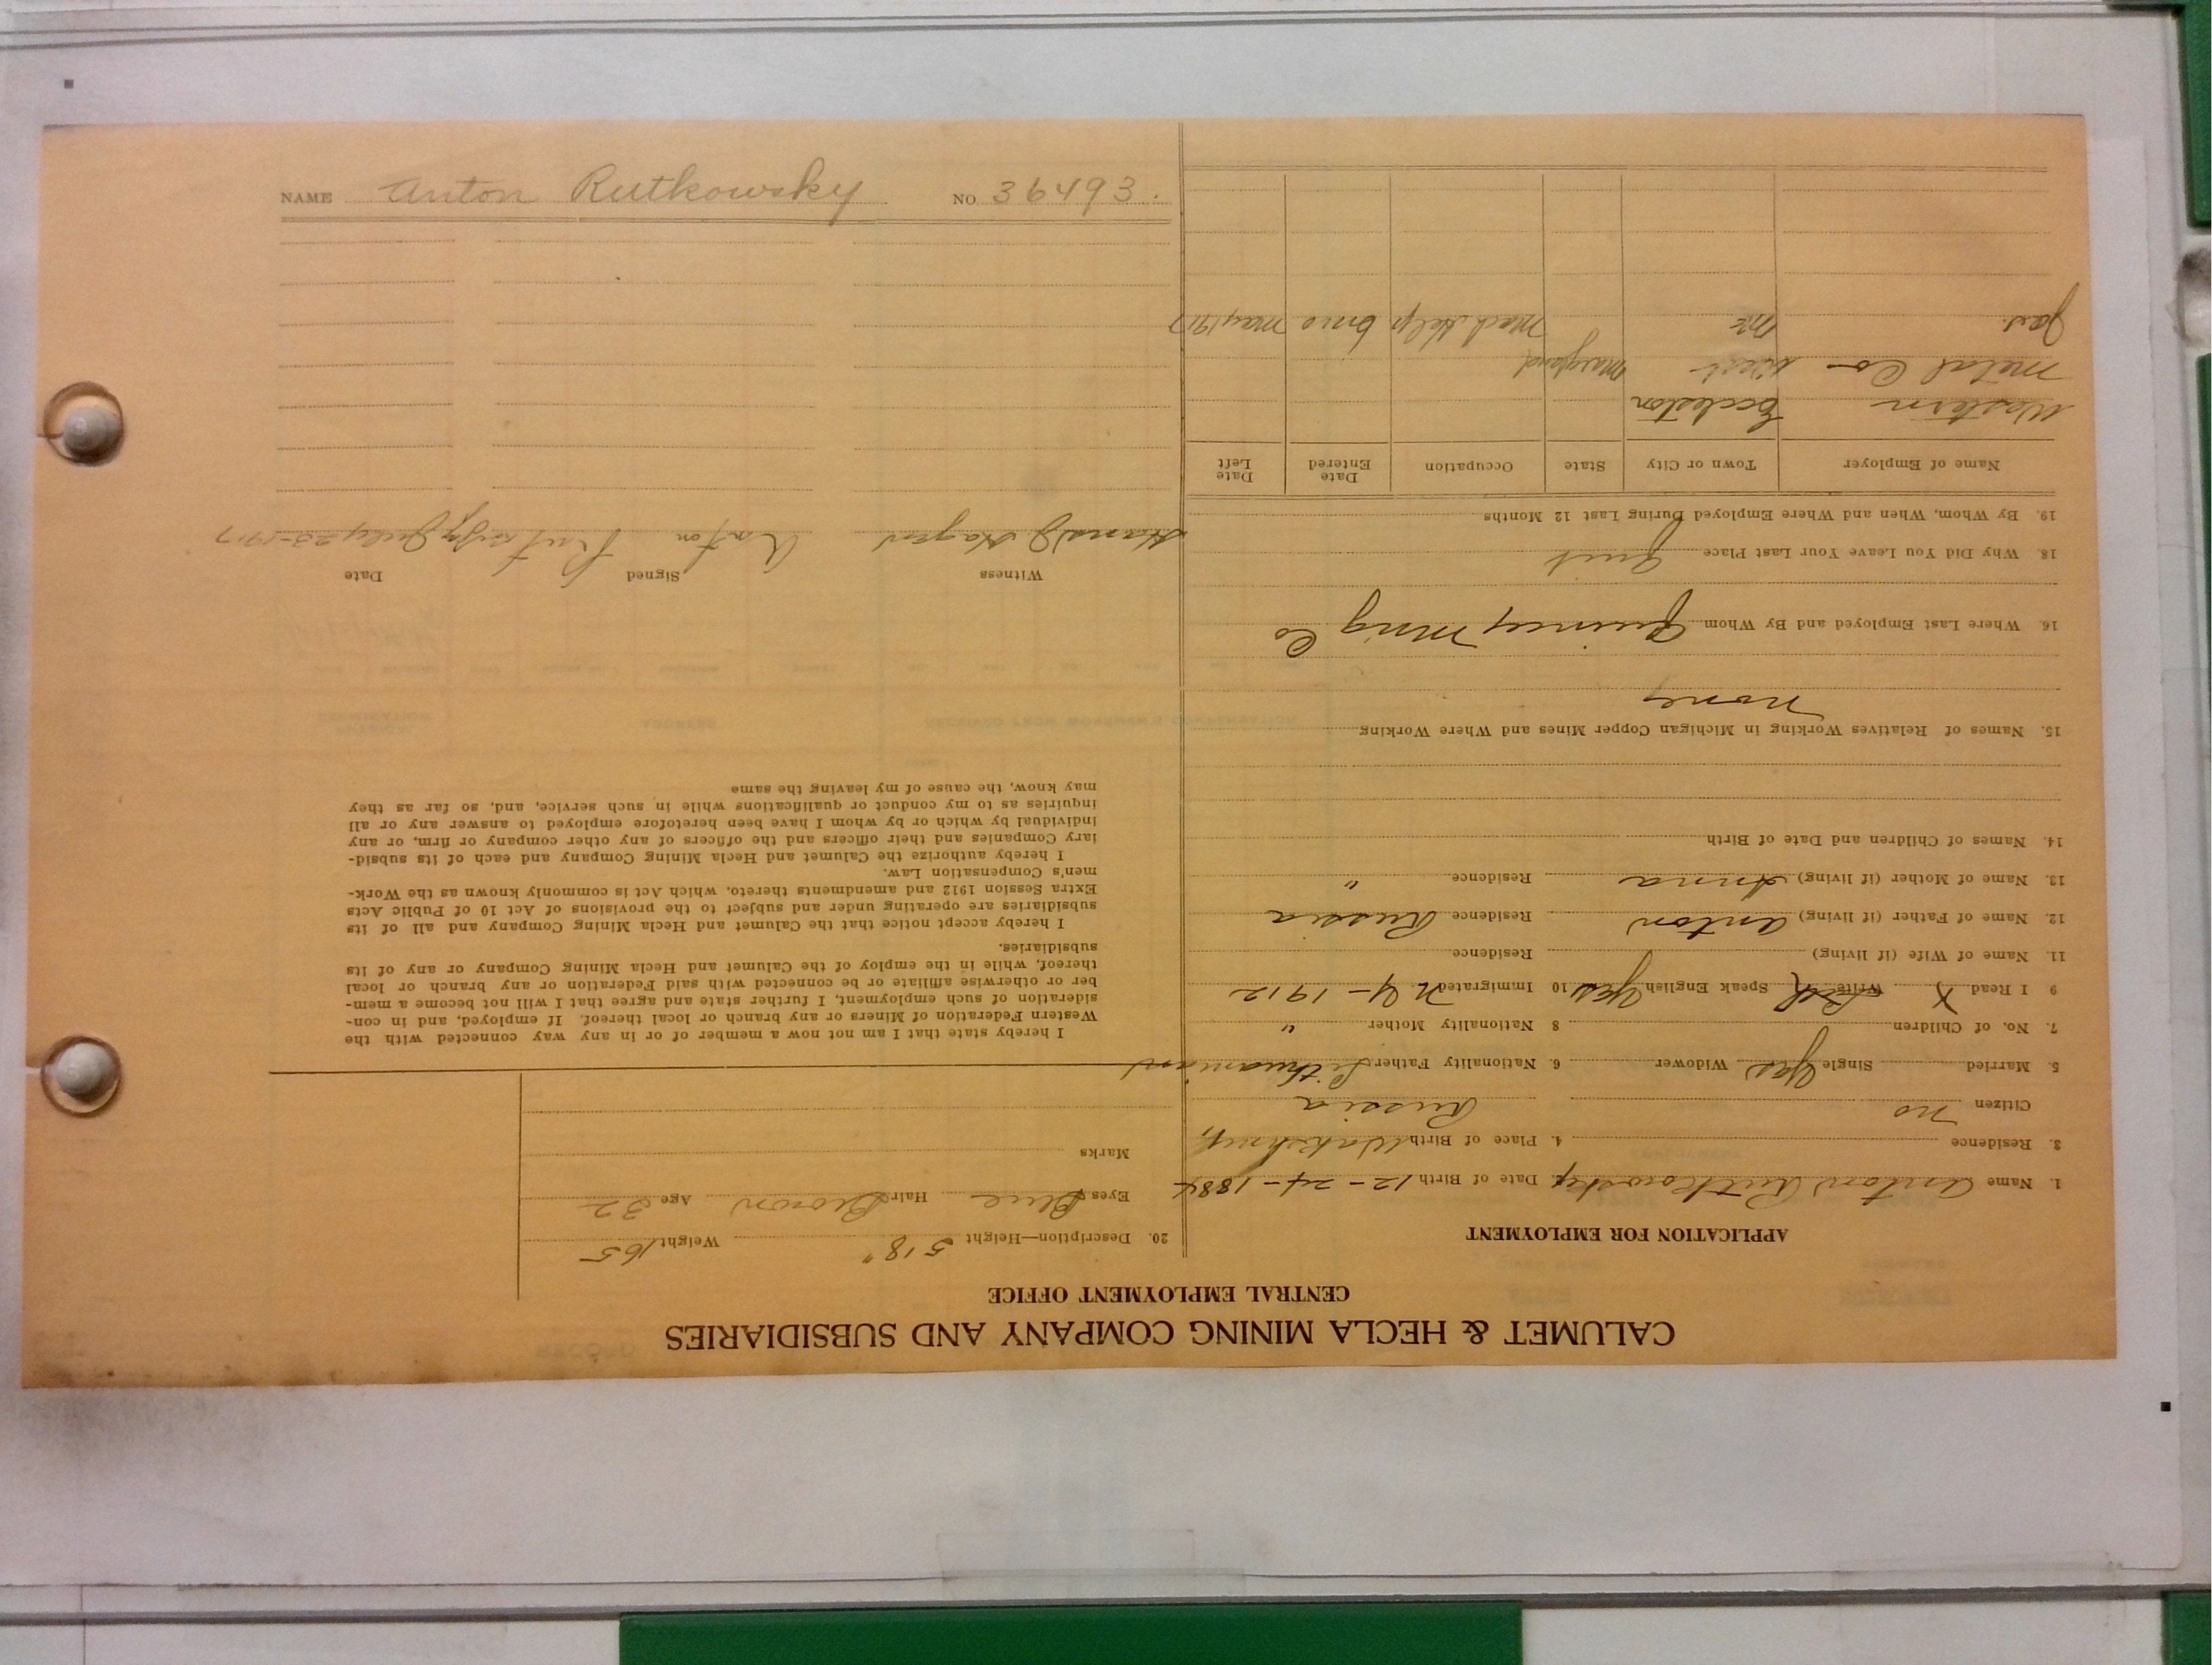 CALUMET & HECLA MINING COMPANY AND SUBSIDIARIES
CENTRAL EMPLOYMENT OFFICE
APPLICATION FOR EMPLOYMENT
1. Name Anton Rutkowsky Date of Birth 12-24-1884
3. Residence 4. Place of Birth
Citizen no Russia
5. Married Single Yes Widower 6. Nationality Father Lithuanian
7. No. of Children 8 Nationality Mother "
9 I Read X Write Speak English Yes 10 Immigrated N Y - 1912
11. Name of Wife (if living) Residence
12. Name of Father (if living) Anton Residence Russia
13. Name of Mother (if living) Anna Residence "
14. Names of Children and Date of Birth
15. Names of Relatives Working in Michigan Copper Mines and Where Working
None
16. Where Last Employed and By Whom Quincy Mning Co
18. Why Did You Leave Your Last Place Quit
19. By Whom, When and Where Employed During Last 12 Months
Name of Employer Town or City State Occupation Date Entered Date Left
Western Eccleston
Metal Co West Maryland
Mach Help 6 mo May 1917
20. Description—Height 5'8" Weight 165
Eyes Blue Hair Brown Age 32
Marks
I hereby state that I am not now a member of or in any way connected with the
Western Federation of Miners or any branch or local thereof. If employed, and in con-
sideration of such employment, I further state and agree that I will not become a mem-
ber or otherwise affiliate or be connected with said Federation or any branch or local
thereof, while in the employ of the Calumet and Hecla Mining Company or any of its
subsidiaries.
I hereby accept notice that the Calumet and Hecla Mining Company and all of its
subsidiaries are operating under and subject to the provisions of Act 10 of Public Acts
Extra Session 1912 and amendments thereto, which Act is commonly known as the Work-
men's Compensation Law.
I hereby authorize the Calumet and Hecla Mining Company and each of its subsid-
iary Companies and their officers and the officers of any other company or firm, or any
individual by which or by whom I have been heretofore employed to answer any or all
inquiries as to my conduct or qualifications while in such service, and, so far as they
may know, the cause of my leaving the same
Witness Signed Date
Hans J Hagen July 23-1917
NAME Anton Rutkowsky NO 36493.